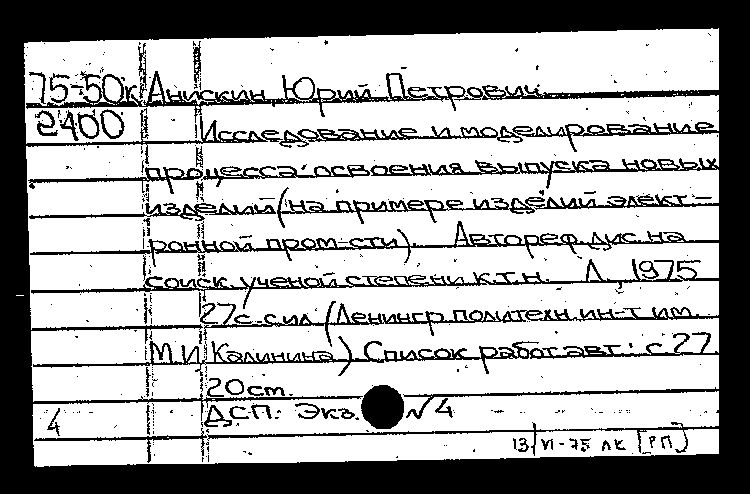 75-50к Анискин, Юрий Петрович.
2400 Исследование и моделирование
процесса освоения выпуска новых
изделий (на примере изделий элект-
ронной пром-сти). Автореф. дис. на
соиск. ученой степени к.т.н. Л., 1975
27 с. с ил. (Ленингр. политехн. ин-т им.
М.И. Калинина) Список работ авт.: с. 27
20 см.
4 ДСП. Экз. №4
13/VI-75 ЛК [РП]